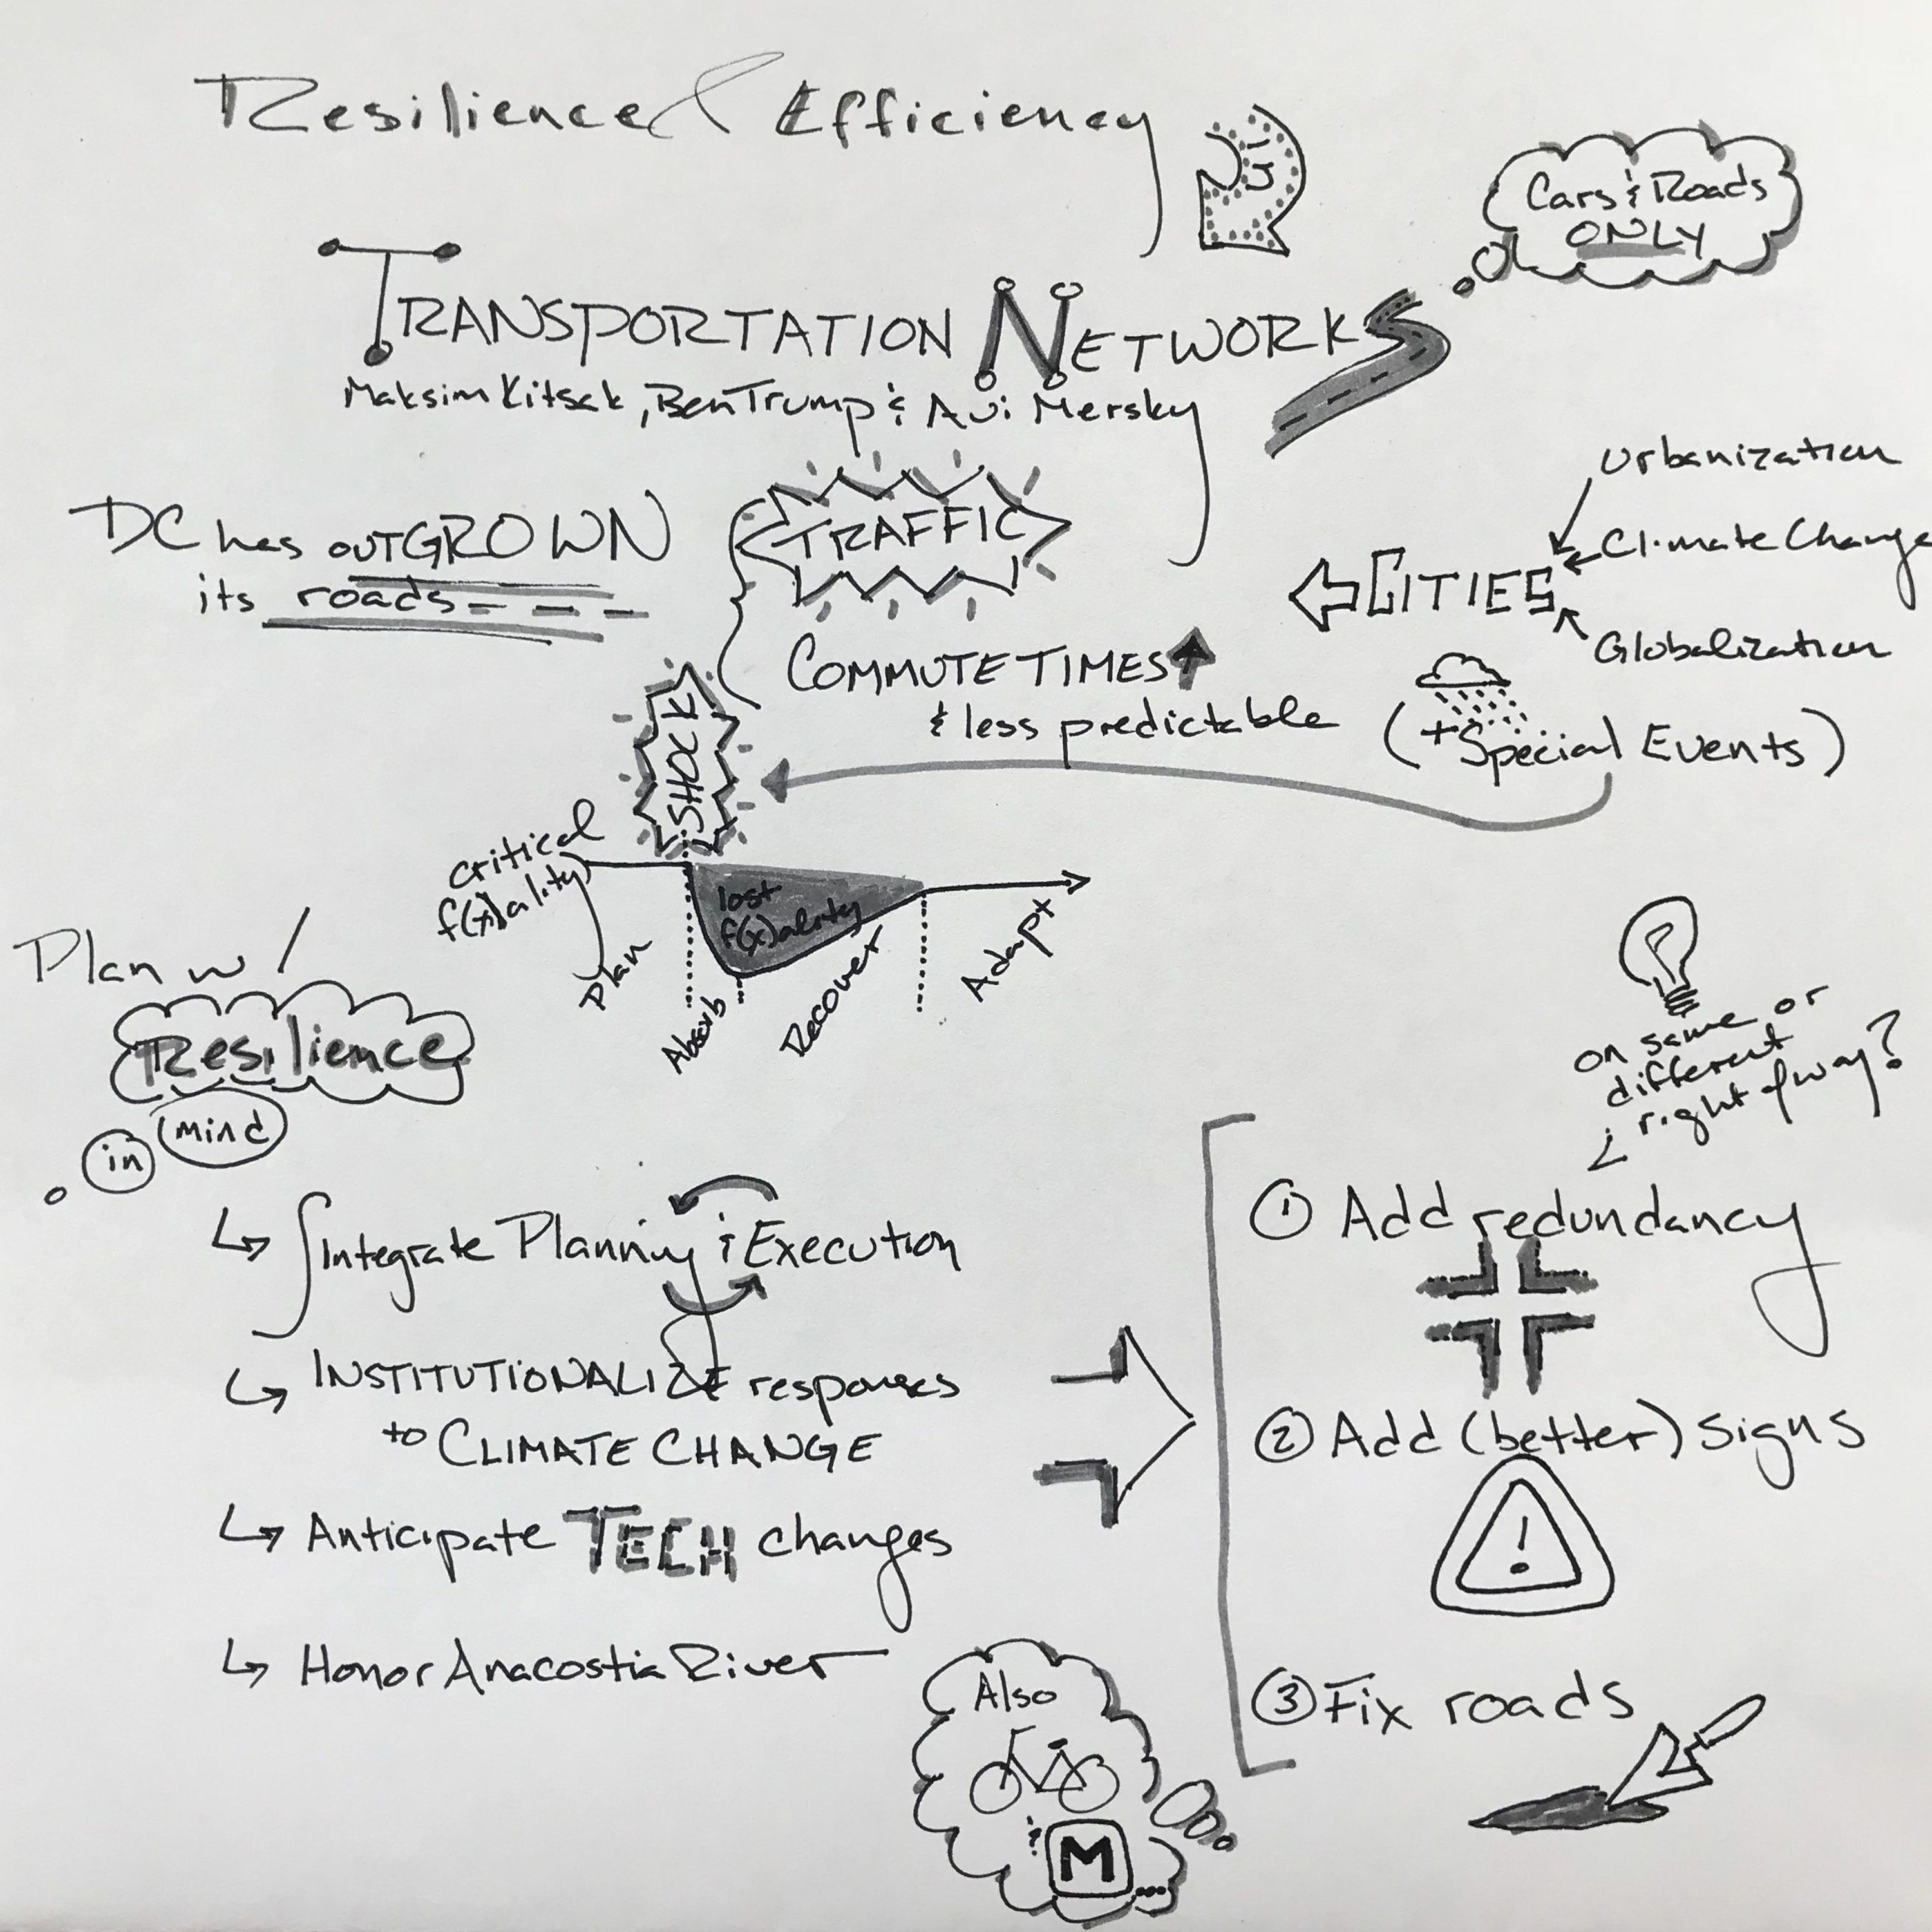 Resilience & Efficiency
in
Cars & Roads
ONLY
TRANSPORTATION NETWORKS
Maksim Kitsak, Ben Trump & Avi Mersky
DC has outGROWN
its roads
TRAFFIC
COMMUTE TIMES
& less predictable
CITIES
Urbanization
Climate Change
Globalization
(+ Special Events)
SHOCK
critical
f(x)ality
lost
f(x)ality
Plan
Absorb
Recover
Adapt
Plan w/
Resilience
in mind
Integrate Planning & Execution
INSTITUTIONALIZE responses
to CLIMATE CHANGE
Anticipate TECH changes
Honor Anacostia River
Also
&
M
...
on same or
different
right of way?
1 Add redundancy
2 Add (better) signs
!
3 Fix roads